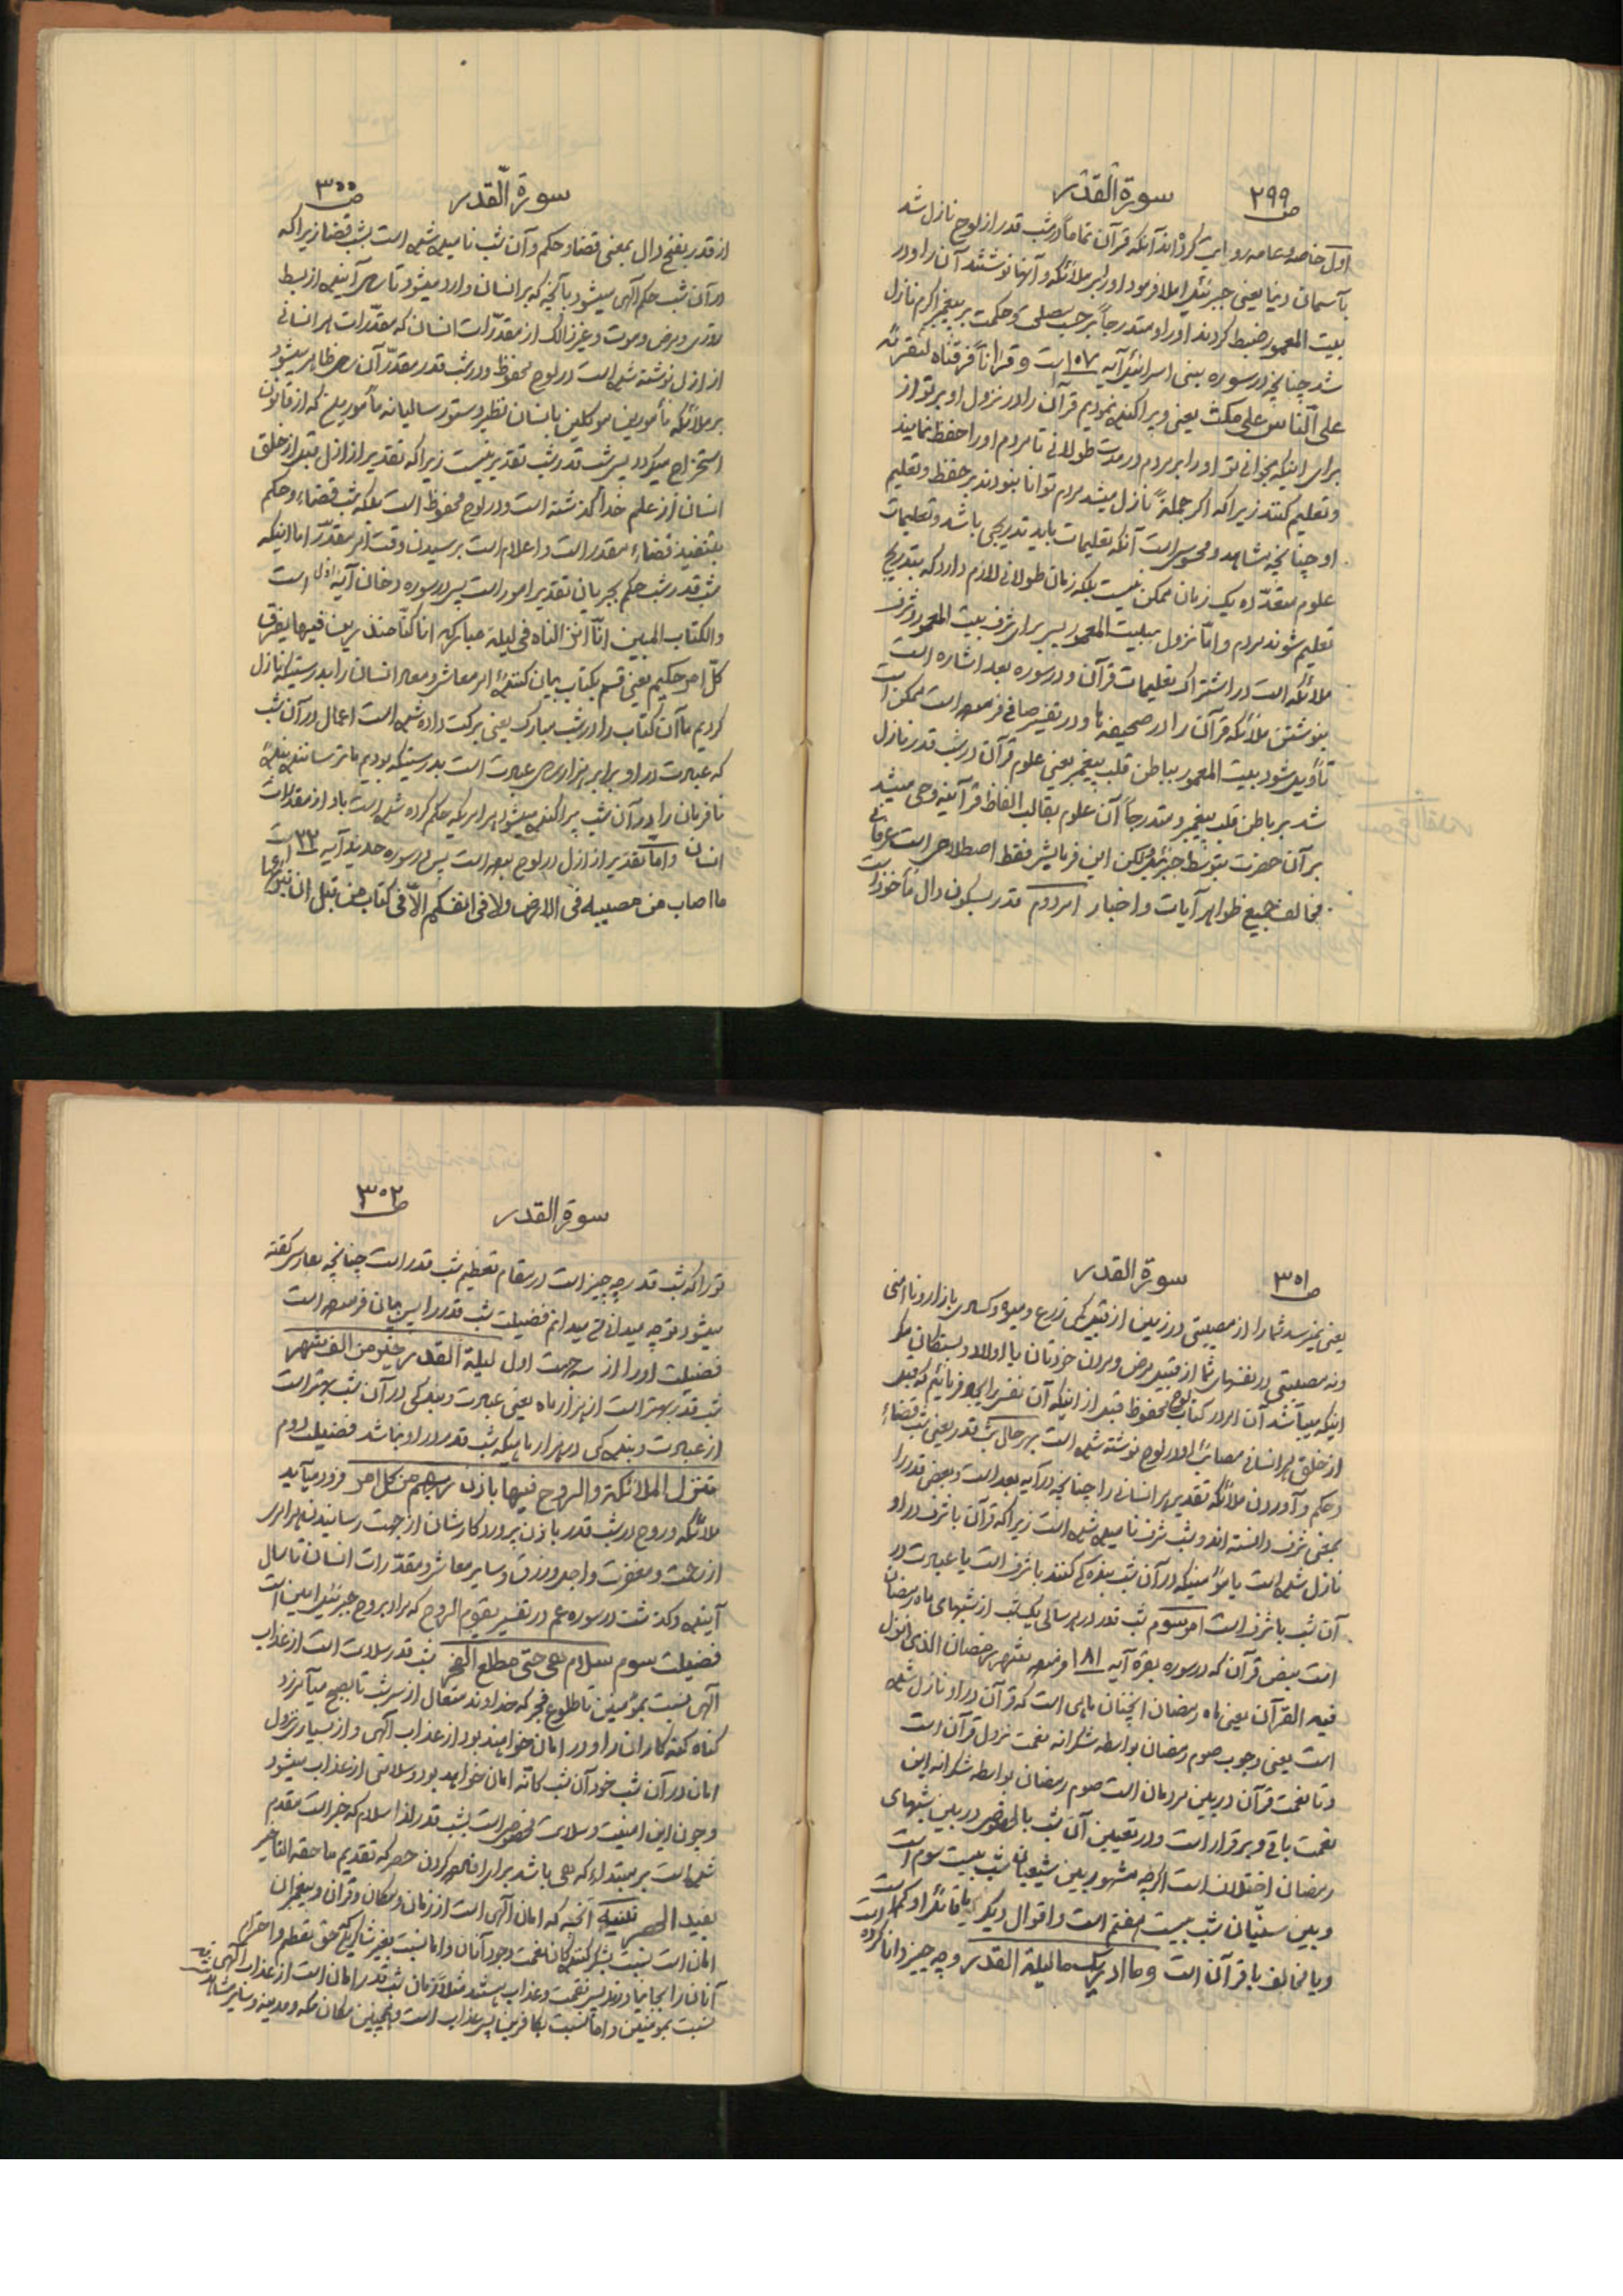 سورة القدر ص ۲۹۹
اول خاصه و عامه روایت کرده‌اند آنکه قرآن تماماً در شب قدر از لوح نازل شد
بآسمان دنیا یعنی جبرئیل املا فرمود او را بر ملائکه و آنها نوشتند آن را و در
بیت المعمور ضبط کردند او را و متدرجاً بر حسب مصلحت و حکمت بر پیغمبر اکرم نازل
شد چنانچه در سوره بنی اسرائیل آیه ۱۰۷ است و قرآناً فرقناه لتقرئه
علی الناس علی مکث یعنی و پراکنده نمودیم قرآن را در نزول او بر تو از
برای اینکه بخوانی تو او را بر مردم در مدت طولانی تا مردم او را حفظ نمایند
و تعلیم کنند زیرا که اگر جملةً نازل میشد مردم توانا نبودند بر حفظ و تعلیم
او چنانچه مشاهد و محسوس است آنکه تعلیمات باید تدریجی باشد و تعلیمات
علوم متعدده یک زمان ممکن نیست بلکه زمان طولانی لازم دارد که بتدریج
تعلیم شوند مردم و اما نزول ببیت المعمور پس برای شرف بیت المعمور و شرف
ملائکه است در اشتراک تعلیمات قرآن و در سوره بعد اشاره است
بنوشتن ملائکه قرآن را در صحیفه‌ها و در تفسیر صافی فرموده است ممکن است
تأویل شود بیت المعمور بباطن قلب پیغمبر یعنی علوم قرآن در شب قدر نازل
شد بر باطن قلب پیغمبر و متدرجاً آن علوم بقالب الفاظ قرآنیه وحی میشد
بر آن حضرت بتوسط جبرئیل ولکن این فرمایش فقط اصطلاحی است عرفانی
مخالف جمیع ظواهر آیات و اخبار امر دوم قدر بسکون دال مأخوذ است
سورة القدر ص ۳۰۰
از قدر بفتح دال بمعنی قضا و حکم و آن شب نامیده شده است بشب قضا زیرا که
در آن شب حکم الهی میشود بآنچه که بر انسان وارد میشود تا سال آینده از بسط
روزی و مرض و موت و غیر ذالک از مقدرات انسان که مقدرات هر انسانی
از ازل نوشته شده است در لوح محفوظ و در شب قدر مقدر آن سال ظاهر میشود
بر ملائکه مأمورین موکلین بانسان نظیر دستور سالیانه مأمور ملخ که از قانون
استخراج میگردد پس شب قدر شب تقدیر نیست زیرا که تقدیر از ازل قبل از خلق
انسان از علم خدا گذشته است و در لوح محفوظ است بلکه شب قضاء و حکم
بتنفیذ قضاء مقدر است و اعلام است برسیدن وقت امر مقدر اما اینکه
شب قدر شب حکم بجریان تقدیر امور است پس در سوره دخان آیه اول است
والکتاب المبین انا انزلناه فی لیلة مبارکه انا کنا منذرین فیها یفرق
کل امر حکیم یعنی قسم بکتاب بیان کننده امر معاش و معاد انسان را بدرستیکه نازل
کردیم ما آن کتاب را در شب مبارک یعنی برکت داده شده است اعمال در آن شب
که عبادت در او برابر هزار سال عبادت است بدرستیکه بودیم ما ترساننده بندهٔ
نافرمان را در آن شب پراکنده میشود هر امریکه حکم کرده شده است باو از مقدرات
انسان و اما تقدیر از ازل در لوح بوده است پس در سوره حدید آیه ۲۲ است
ما اصاب من مصیبه فی الارض ولا فی انفسکم الا فی کتاب من قبل ان نبرأها
سورة القدر ص ۳۰۱
یعنی نمیرسد شما را از مصیبتی در زمین از قبیل کمی زرع و میوه و کسادی بازار و ناامنی
و نه مصیبتی در نفسهای شما از قبیل مرض و مردن خودتان یا اولاد و بستگان مگر
اینکه میباشد آن امر در کتاب لوح محفوظ قبل از اینکه آن نفس را ایجاد فرمائیم که قبل
از خلق هر انسانی مصائب او در لوح نوشته شده است بهر حال شب قدر یعنی شب قضاء
و حکم و آوردن ملائکه تقدیر هر انسانی را چنانچه در آیه بعد است و بعضی قدر را
بمعنی شرف دانسته‌اند و شب شرف نامیده شده است زیرا که قرآن با شرف در او
نازل شده است یا مؤمنینکه در آن شب بندگی کنند با شرف است یا عبادت در
آن شب با شرف است امر سوم شب قدر در هر سالی یک شب از شبهای ماه رمضان
است بنص قرآن که در سوره بقره آیه ۱۸۱ فرمود شهر رمضان الذی انزل
فیه القرآن یعنی ماه رمضان آنچنان ماهی است که قرآن در او نازل شده
است یعنی وجوب صوم رمضان بواسطه شکرانه نعمت نزول قرآن است
و تا نعمت قرآن در بین مردمان است صوم رمضان بواسطه شکرانه این
نعمت باقی و برقرار است و در تعیین آن شب بالخصوص در بین شبهای
رمضان اختلاف است اگرچه مشهور بین شیعیان شب بیست سوم است
و بین سنیان شب بیست هفتم است و اقوال دیگر یا قائل او کم است
و یا مخالف با قرآن است و ما ادریک ما لیلة القدر و چه چیز دانا کرده
سورة القدر ص ۳۰۲
تو را که شب قدر چه چیز است در مقام تعظیم شب قدر است چنانچه بفارسی گفته
میشود تو چه میدانی من میدانم فضیلت شب قدر را پس بیان فرموده است
فضیلت او را از سه جهت اول لیلة القدر خیر من الف شهر
شب قدر بهتر است از هزار ماه یعنی عبادت و بندگی در آن شب بهتر است
از عبادت و بندگی در هزار ماهیکه شب قدر در او نباشد فضیلت دوم
تنزل الملائکة والروح فیها باذن ربهم من کل امر فرود میآید
ملائکه و روح در شب قدر باذن پروردگارشان از جهت رسانیدن هر امری
از رحمت و مغفرت و اجل و رزق و سایر معاش و مقدرات انسان تا سال
آینده و گذشت در سوره عم در تفسیر یقوم الروح که مراد بروح جبرئیل امین است
فضیلت سوم سلام هی حتی مطلع الفجر شب قدر سلامت است از عذاب
الهی نسبت بمؤمنین تا طلوع فجر که خداوند متعال از سر شب تا بصبح میآمرزد
گناه گنه‌کاران را و در امان خواهند بود از عذاب الهی و از بسیاری نزول
امان در آن شب خود آن شب کأنّه امان خواهد بود و سلامتی از عذاب میشود
و چون این امنیت و سلامت مخصوص است بشب قدر لذا سلام که خبر است مقدم
شده است بر مبتداء که هی باشد برای افاده کردن حصر که تقدیم ما حقه التأخیر
یفید الحصر تنبیه آنچه که امان الهی است از زمان و مکان و قرآن و پیغمبران
امان است نسبت بشکر کنندگان نعمت وجود آنان و اما نسبت بغیر شاکرین حق تعظیم و احترام
آنان را بجا نیاورند پس نقمت و عذاب هستند مثلاً زمان شب قدر امان است از عذاب الهی
نسبت بمؤمنین و اما نسبت بکافرین پس عذاب است و همچنین مکان مکه و مدینه و سایر مشاهد